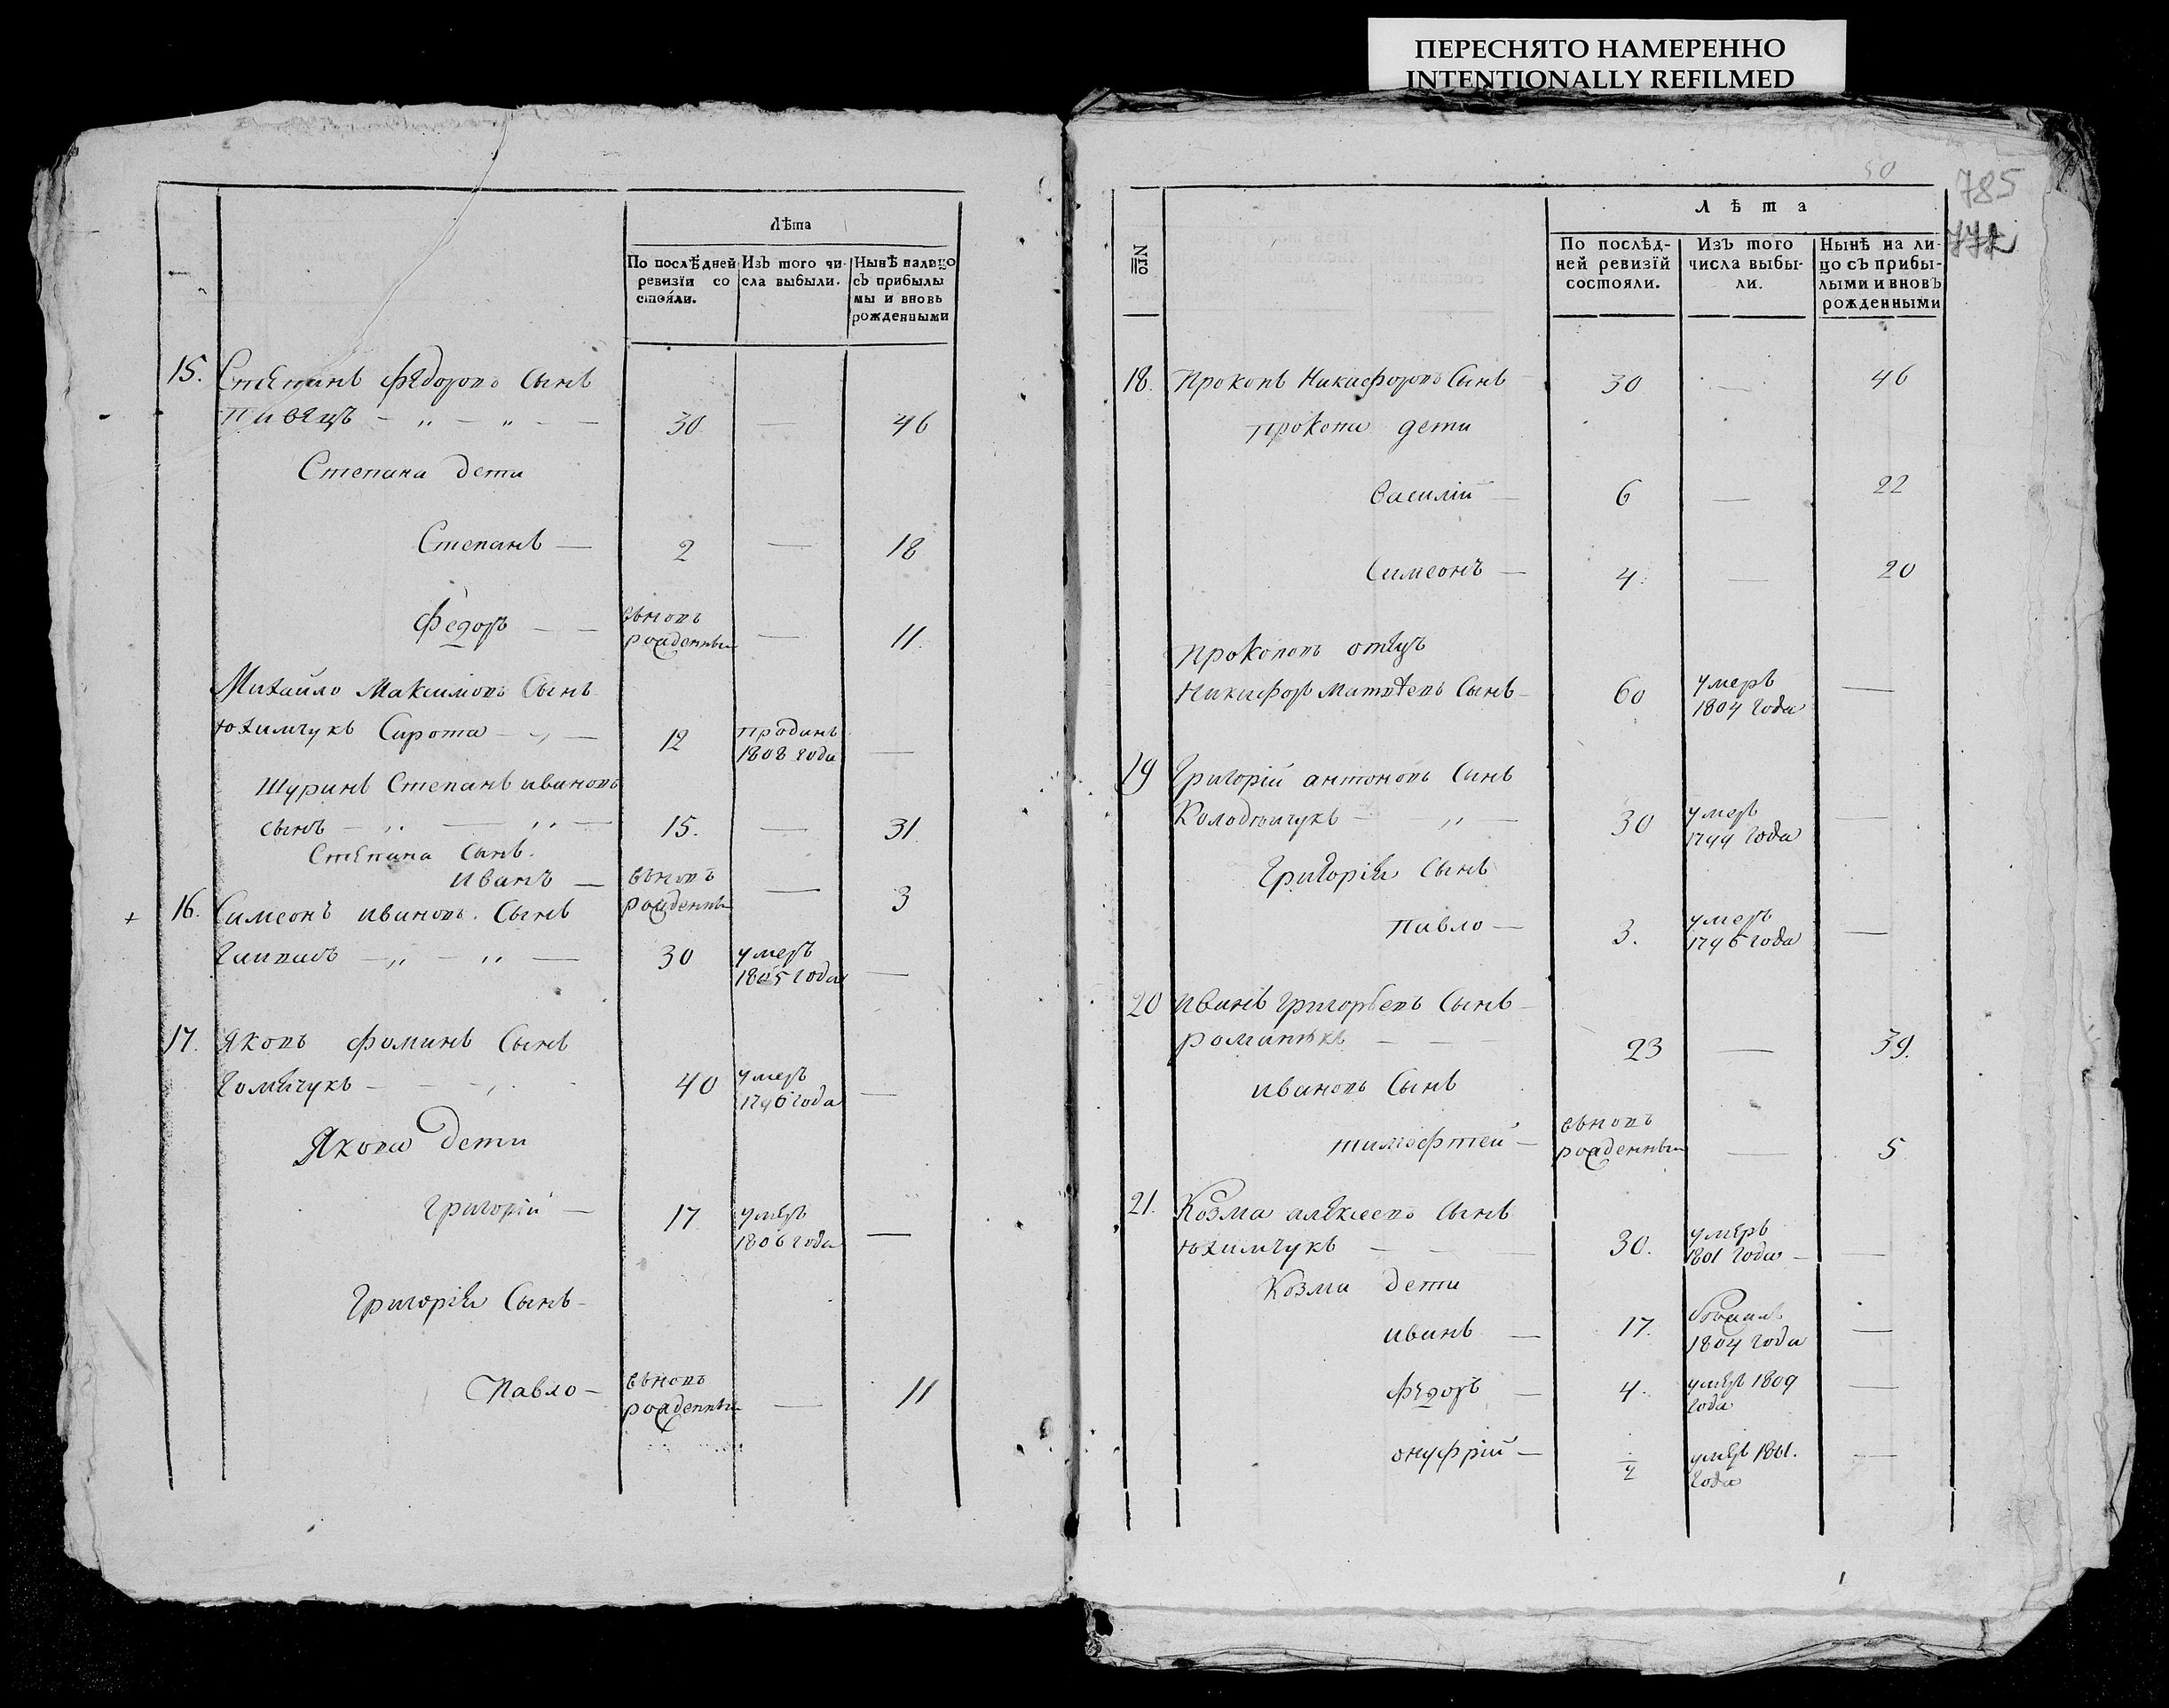 ПЕРЕСНЯТО НАМЕРЕННО
INTENTIONALLY REFILMED
Лѣта
По послѣдней ревизїи со стояли.
Изъ того чи-сла выбыли.
Нынѣ налицо съ прибылы мы и вновь рожденными
15. Степанъ Федоровъ Сынъ
30 — 46
Степана дети
Степанъ — 2 — 18
Федоръ — вьновь
рожденный — 11.
Михайло Максимовъ Сынъ
Юхимчукъ Сирота — 12 проданъ
1808 года —
Шуринъ Степанъ ивановъ
сынъ — 15. — 31.
Степана Сынъ.
иванъ — вьновь
рожденный — 3
16. Симеонъ ивановъ. Сынъ
30 умеръ
1805 года —
17. Яковъ фоминъ Сынъ
40 умеръ
1796 года —
Якова дети
григорій — 17 умеръ
1806 года —
григорія Сынъ
Павло — вьновь
рожденный — 11
50
785
772
Nго
Лѣта
По послѣд-ней ревизїй состояли.
Изъ того числа выбы-ли.
Нынѣ на ли-цо съ прибы-лыми и вновь рожденными
18. Прокопъ Никифоровъ Сынъ 30 — 46
прокопа дети
василій — 6 — 22
Симеонъ — 4. — 20
Прокоповъ отецъ
Никифоръ Матвѣевъ Сынъ 60 умеръ
1804 года —
19 Григорій антоновъ Сынъ
30 умеръ
1799 года —
Григорія Сынъ
Павло — 3. умеръ
1796 года —
20 иванъ григорьевъ Сынъ
23 — 39.
ивановъ Сынъ
тимофтей — вьновь
рожденный — 5
21. Козма алексеевъ Сынъ
Юхимчукъ — 30. умеръ
1801 года —
Козми дети
иванъ — 17. бежалъ
1804 года —
федоръ — 4. умеръ 1809
года —
онуфрій — умеръ 1801.
года —